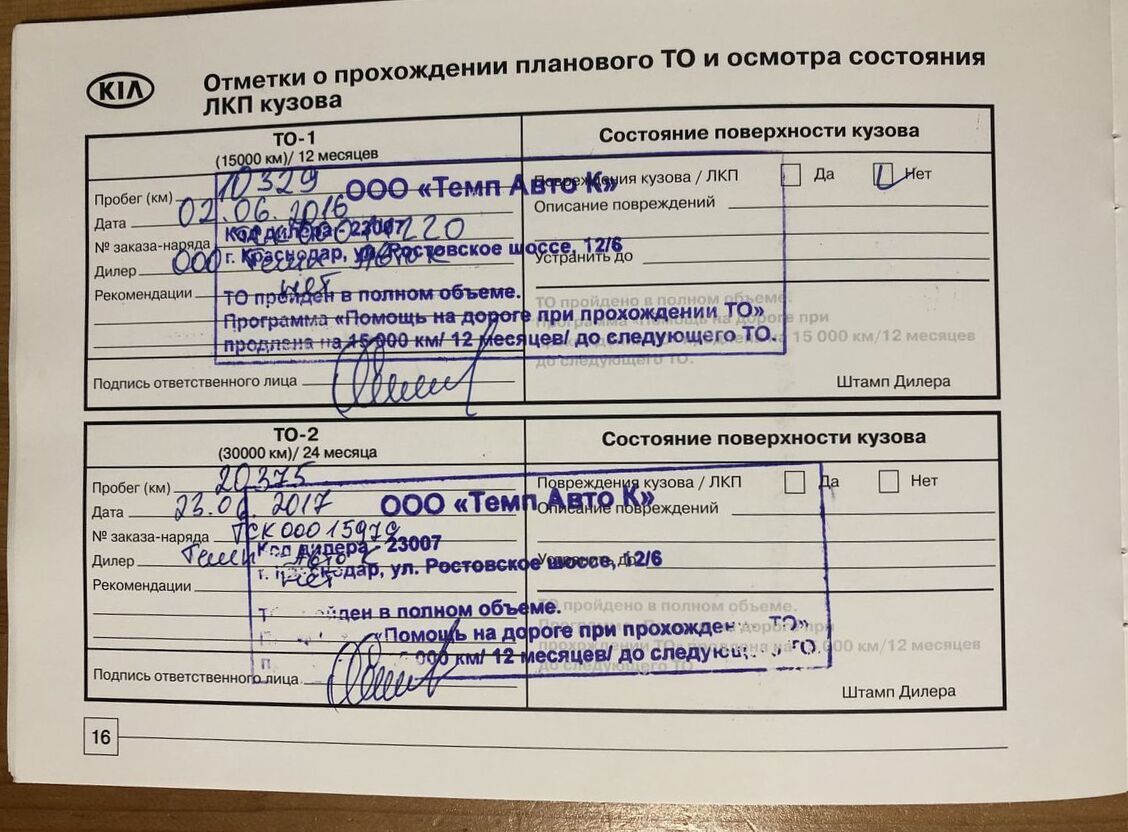 KIA
Отметки о прохождении планового ТО и осмотра состояния
ЛКП кузова
ТО-1
(15000 км)/ 12 месяцев
Состояние поверхности кузова
Пробег (км) 10329
Повреждения кузова / ЛКП Да Нет
ООО «Темп Авто К»
Дата 02.06.2016
Описание повреждений
№ заказа-наряда
Код дилера - 23007
г. Краснодар, ул. Ростовское шоссе, 12/6
Дилер ООО Темп Авто К
Устранить до
Рекомендации нет
ТО пройден в полном объеме.
Программа «Помощь на дороге при прохождении ТО»
продлена на 15 000 км/ 12 месяцев/ до следующего ТО.
ТО пройдено в полном объеме.
15 000 км/12 месяцев
до следующего ТО.
Подпись ответственного лица
Штамп Дилера
ТО-2
(30000 км)/ 24 месяца
Состояние поверхности кузова
Пробег (км) 20375
Повреждения кузова / ЛКП Да Нет
ООО «Темп Авто К»
Дата 23.06.2017
Описание повреждений
№ заказа-наряда ТСК0001597
Код дилера - 23007
Дилер Темп Авто К
Устранить до
г. Краснодар, ул. Ростовское шоссе, 12/6
Рекомендации нет
ТО пройдено в полном объеме.
йден в полном объеме.
«Помощь на дороге при прохожден ТО»
000 км/ 12 месяцев/ до следующ ТО.
000 км/12 месяцев
до следующего ТО
Подпись ответственного лица
Штамп Дилера
16